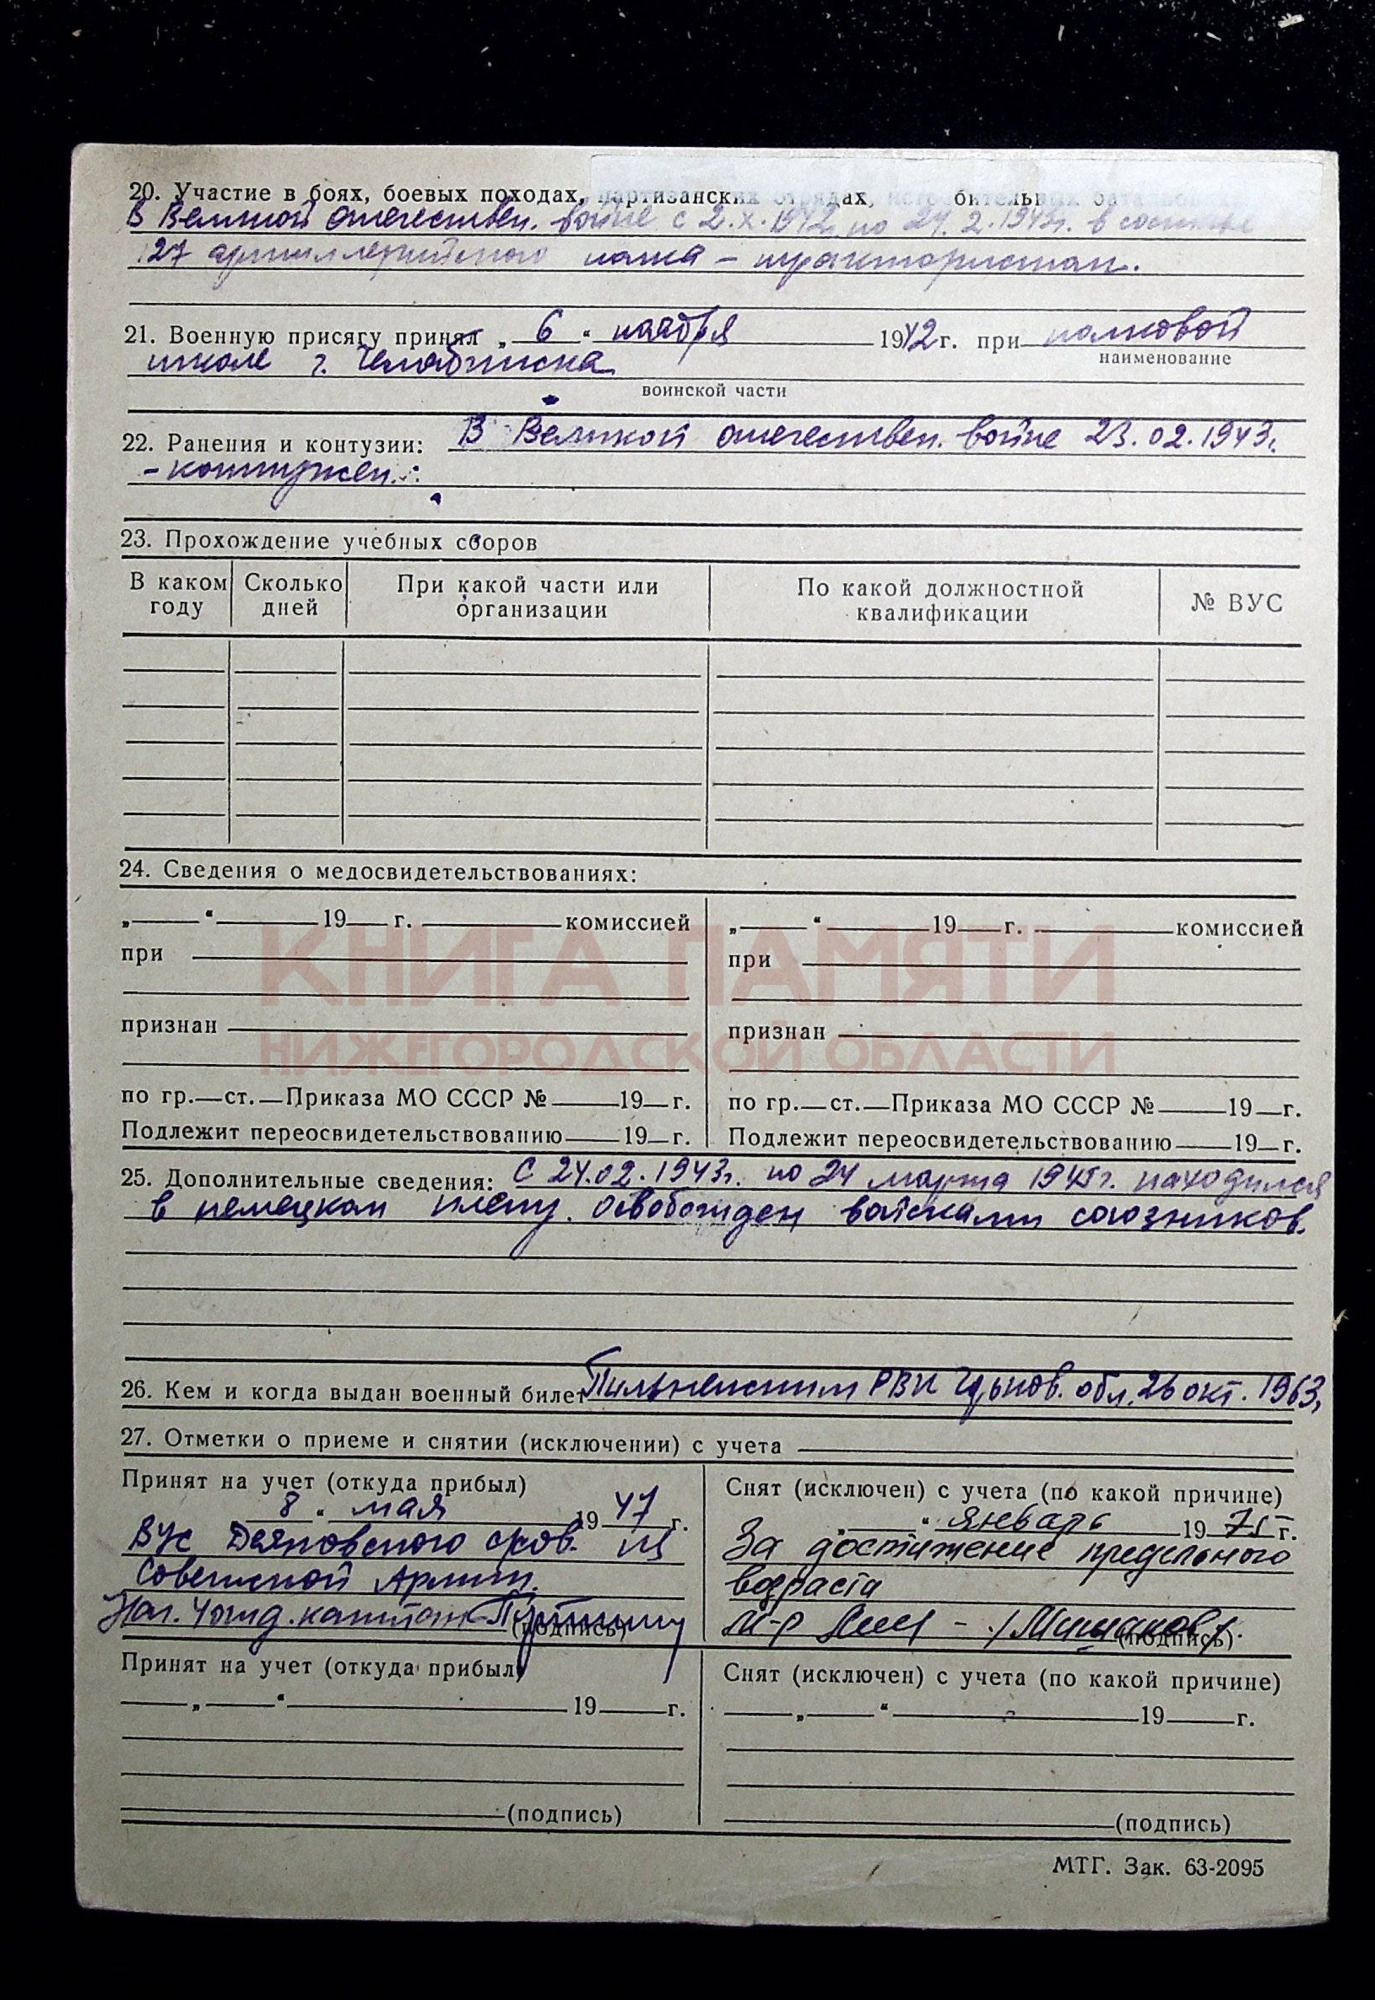 20. Участие в боях, боевых походах, партизанских отрядах, истребительных батальонах
В Великой отечествен. войне с 2.X.1942 по 24.2.1943г. в составе
127 артиллерийского полка – трактористом.
21. Военную присягу принял „ 6 “ ноября 1942 г. при полковой
наименование
школе г. Челябинска
воинской части
22. Ранения и контузии: В Великой отечествен. войне 23.02.1943г.
– контужен.
23. Прохождение учебных сборов
В каком году Сколько дней При какой части или организации По какой должностной квалификации № ВУС
24. Сведения о медосвидетельствованиях:
„ “ 19 г. комиссией „ “ 19 г. комиссией
при при
КНИГА ПАМЯТИ
признан признан
НИЖЕГОРОДСКОЙ ОБЛАСТИ
по гр. ст. Приказа МО СССР № 19 г. по гр. ст. Приказа МО СССР № 19 г.
Подлежит переосвидетельствованию 19 г. Подлежит переосвидетельствованию 19 г.
25. Дополнительные сведения: С 24.02.1943г. по 24 марта 1945г. находился
в немецком плену. Освобожден войсками союзников.
26. Кем и когда выдан военный билет Пильнинским РВК Горьков. обл. 26 окт. 1963г
27. Отметки о приеме и снятии (исключении) с учета
Принят на учет (откуда прибыл) Снят (исключен) с учета (по какой причине)
8 “ мая 1947 г. „ “ январь 1975 г.
ВУС Деяновского из За достижение предельного
Советской Армии. возраста
Нач. 4 отд. капитан м-р
(подпись) (подпись)
Принят на учет (откуда прибыл) Снят (исключен) с учета (по какой причине)
„ “ 19 г. „ “ 19 г.
(подпись) (подпись)
МТГ. Зак. 63-2095